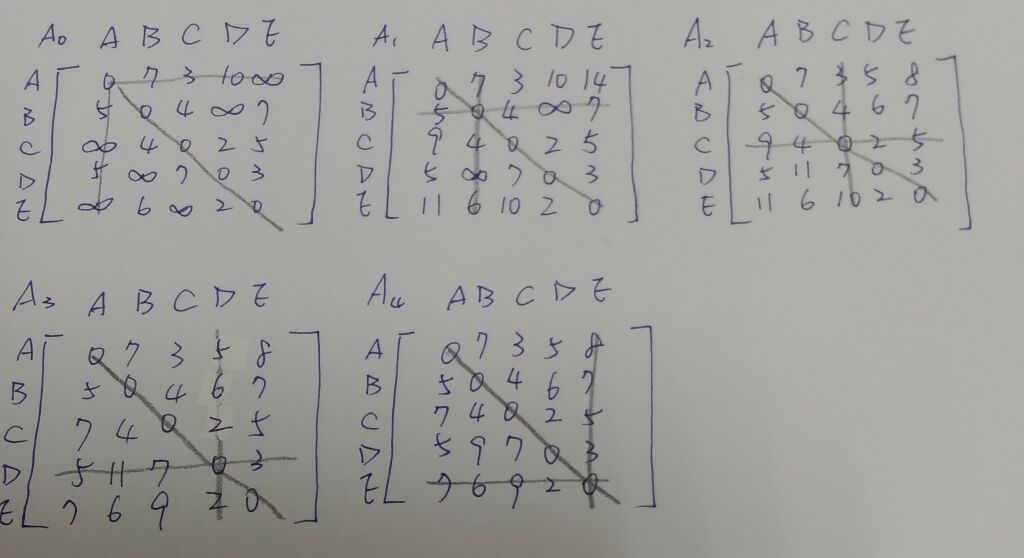 A0 A B C D E
A 0 7 3 10 ∞
B 5 0 4 ∞ 7
C ∞ 4 0 2 5
D 5 ∞ 7 0 3
E ∞ 6 ∞ 2 0
A1 A B C D E
A 0 7 3 10 14
B 5 0 4 ∞ 7
C 9 4 0 2 5
D 5 ∞ 7 0 3
E 11 6 10 2 0
A2 A B C D E
A 0 7 3 5 8
B 5 0 4 6 7
C 9 4 0 2 5
D 5 11 7 0 3
E 11 6 10 2 0
A3 A B C D E
A 0 7 3 5 8
B 5 0 4 6 7
C 7 4 0 2 5
D 5 11 7 0 3
E 7 6 9 2 0
A4 A B C D E
A 0 7 3 5 8
B 5 0 4 6 7
C 7 4 0 2 5
D 5 9 7 0 3
E 7 6 9 2 0